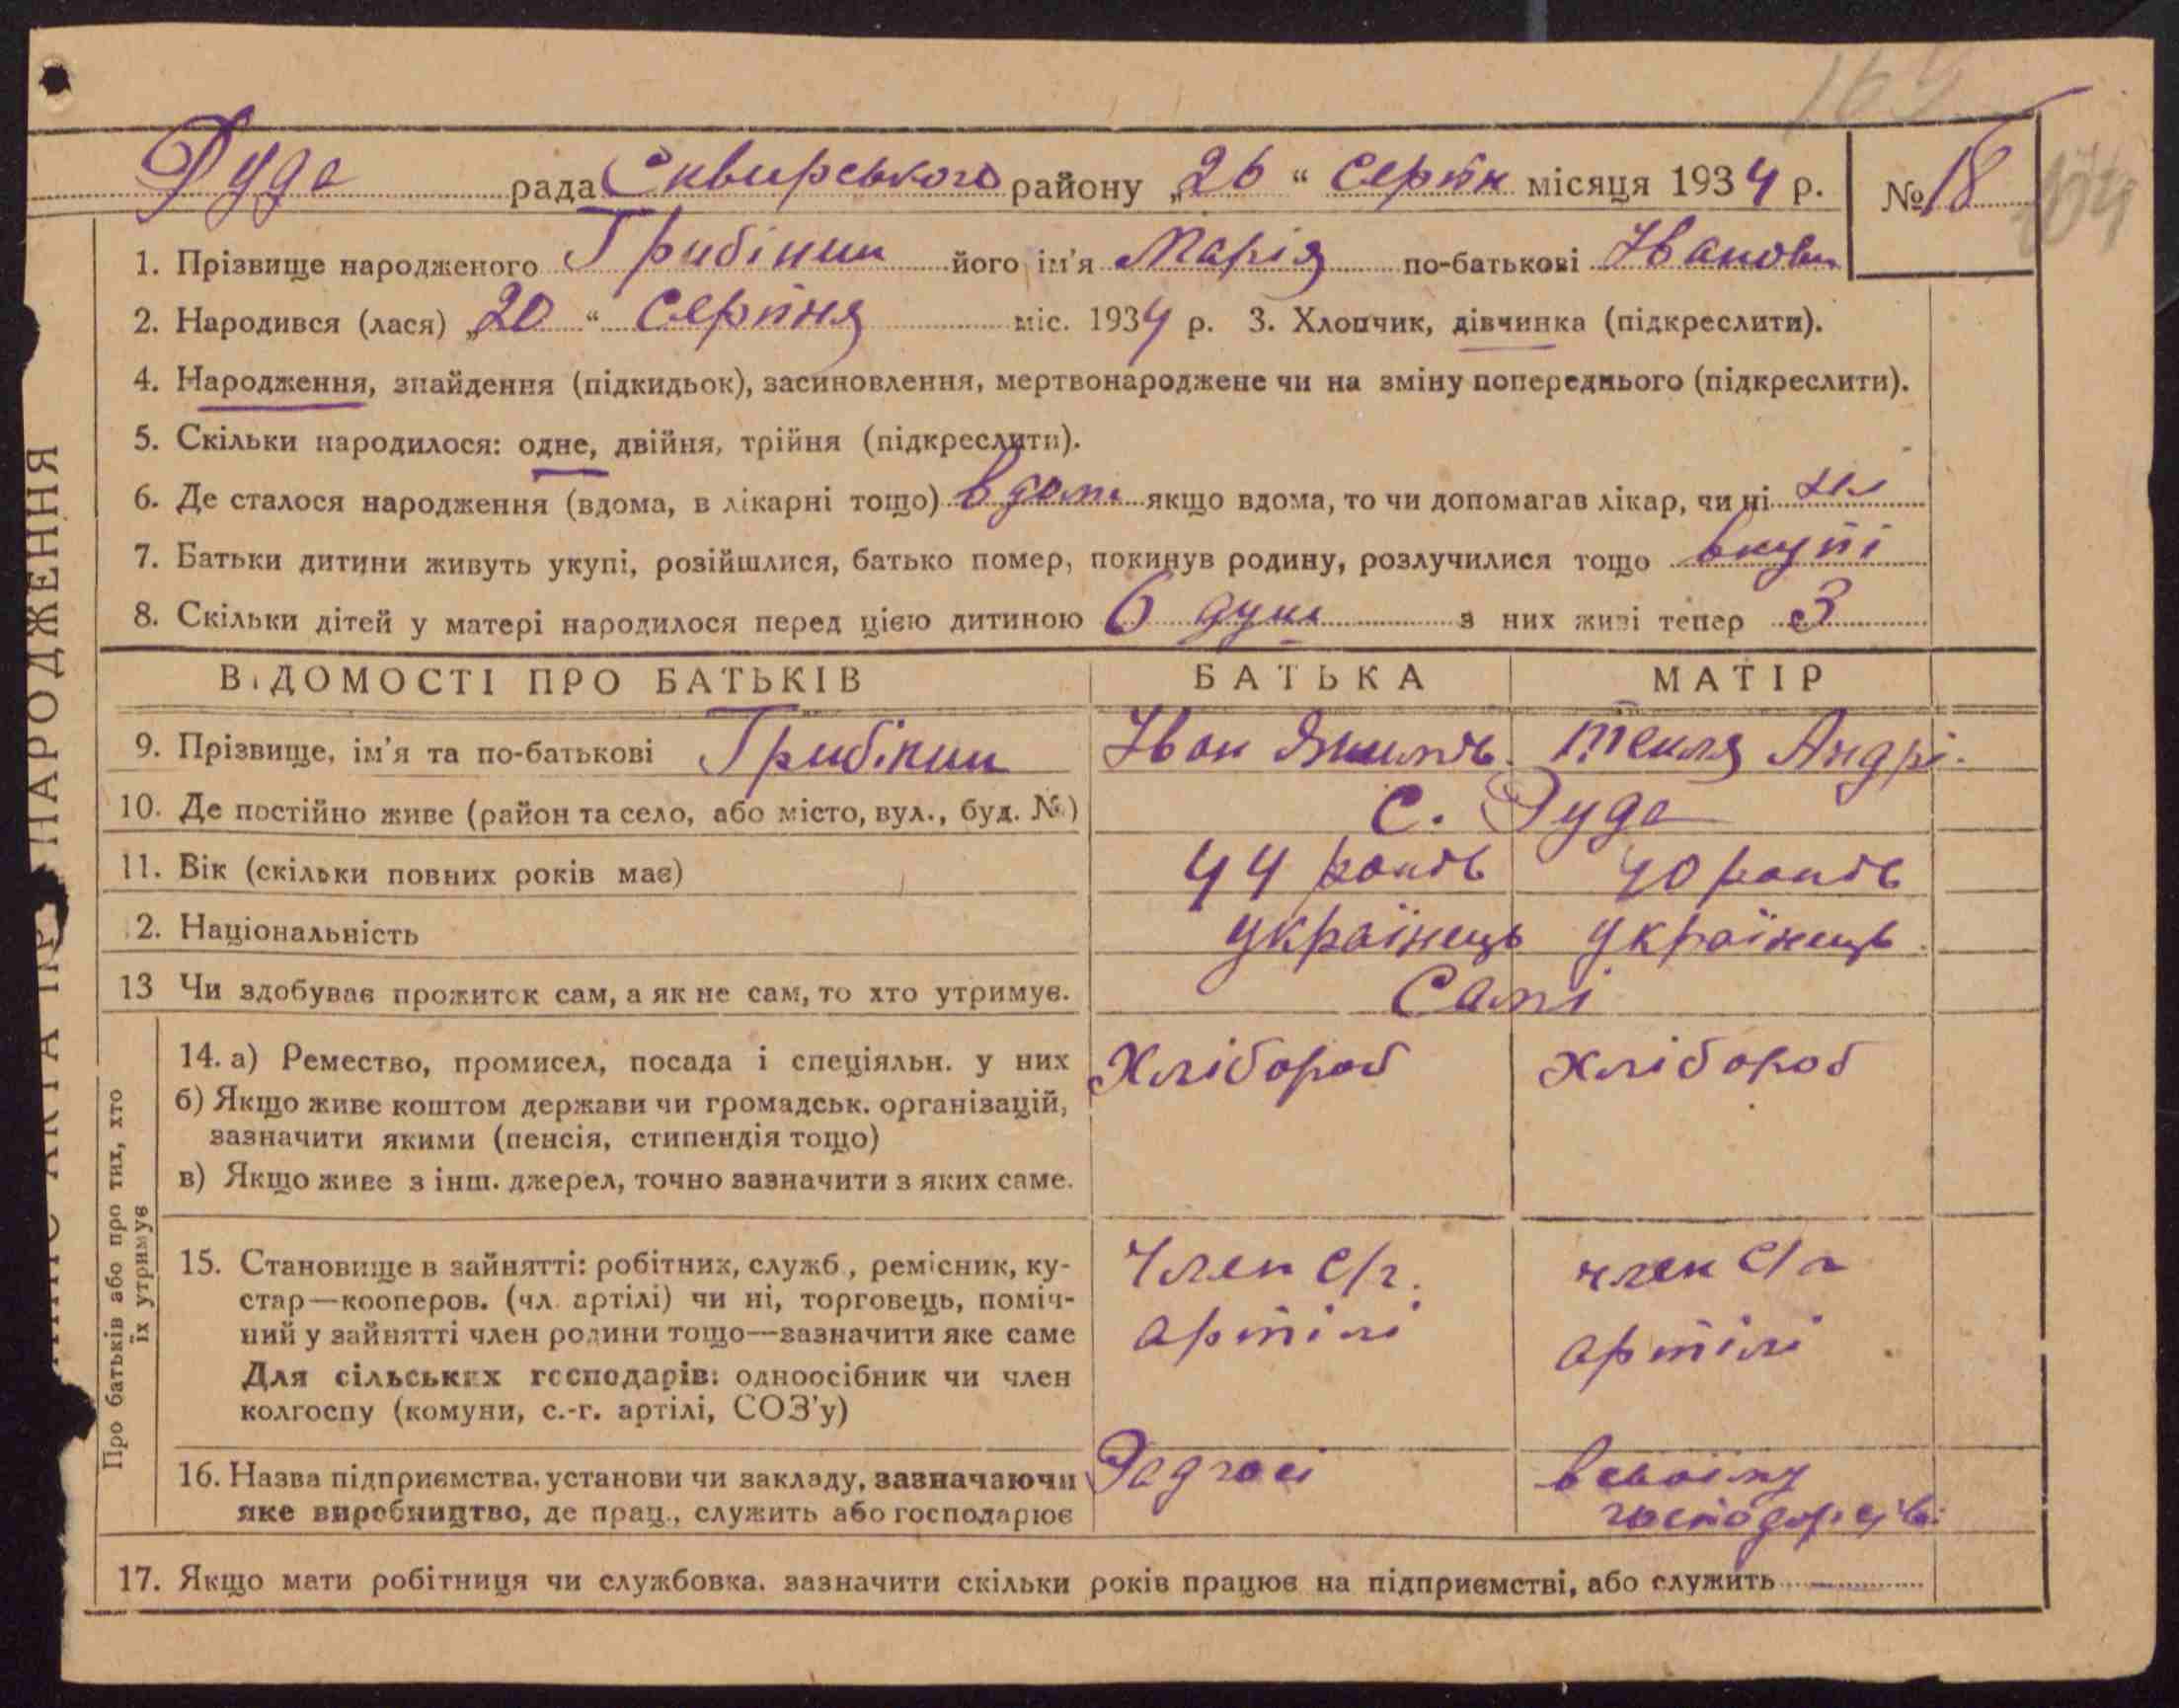 Руда рада Сквирського району „26“ серпн місяця 1934 р. № 18
1. Прізвище народженого Грибінин його ім'я Марія по-батькові Іванови
2. Народився (лася) „20“ серпня міс. 1934 р. 3. Хлопчик, дівчинка (підкреслити).
4. Народження, знайдення (підкидьок), засиновлення, мертвонароджене чи на зміну попереднього (підкреслити).
5. Скільки народилося: одне, двійня, трійня (підкреслити).
6. Де сталося народження (вдома, в лікарні тощо) вдома якщо вдома, то чи допомагав лікар, чи ні ні
7. Батьки дитини живуть укупі, розійшлися, батько помер, покинув родину, розлучилися тощо вкупі
8. Скільки дітей у матері народилося перед цією дитиною 6 душ з них живі тепер 3
ВІДОМОСТІ ПРО БАТЬКІВ БАТЬКА МАТІР
9. Прізвище, ім'я та по-батькові Грибінин Іван Текля Андрі.
10. Де постійно живе (район та село, або місто, вул., буд. №) С. Руда
11. Вік (скільки повних років має) 44 років 40 років
12. Національність українець українець
13 Чи здобуває прожиток сам, а як не сам, то хто утримує. Самі
Про батьків або про тих, хто їх утримує
14. а) Ремество, промисел, посада і спеціяльн. у них Хлібороб хлібороб
б) Якщо живе коштом держави чи громадськ. організацій,
зазначити якими (пенсія, стипендія тощо)
в) Якщо живе з інш. джерел, точно зазначити з яких саме.
15. Становище в зайнятті: робітник, служб., ремісник, ку-
стар—кооперов. (чл. артілі) чи ні, торговець, поміч-
ний у зайнятті член родини тощо—зазначити яке саме
Для сільських господарів: одноосібник чи член
колгоспу (комуни, с.-г. артілі, СОЗ'у)
Член с/г. член с/г
артілі артілі
16. Назва підприємства, установи чи закладу, зазначаючи
яке виробництво, де прац., служить або господарює
в своїму
17. Якщо мати робітниця чи службовка, зазначити скільки років працює на підприємстві, або служить
НАРОДЖЕННЯ